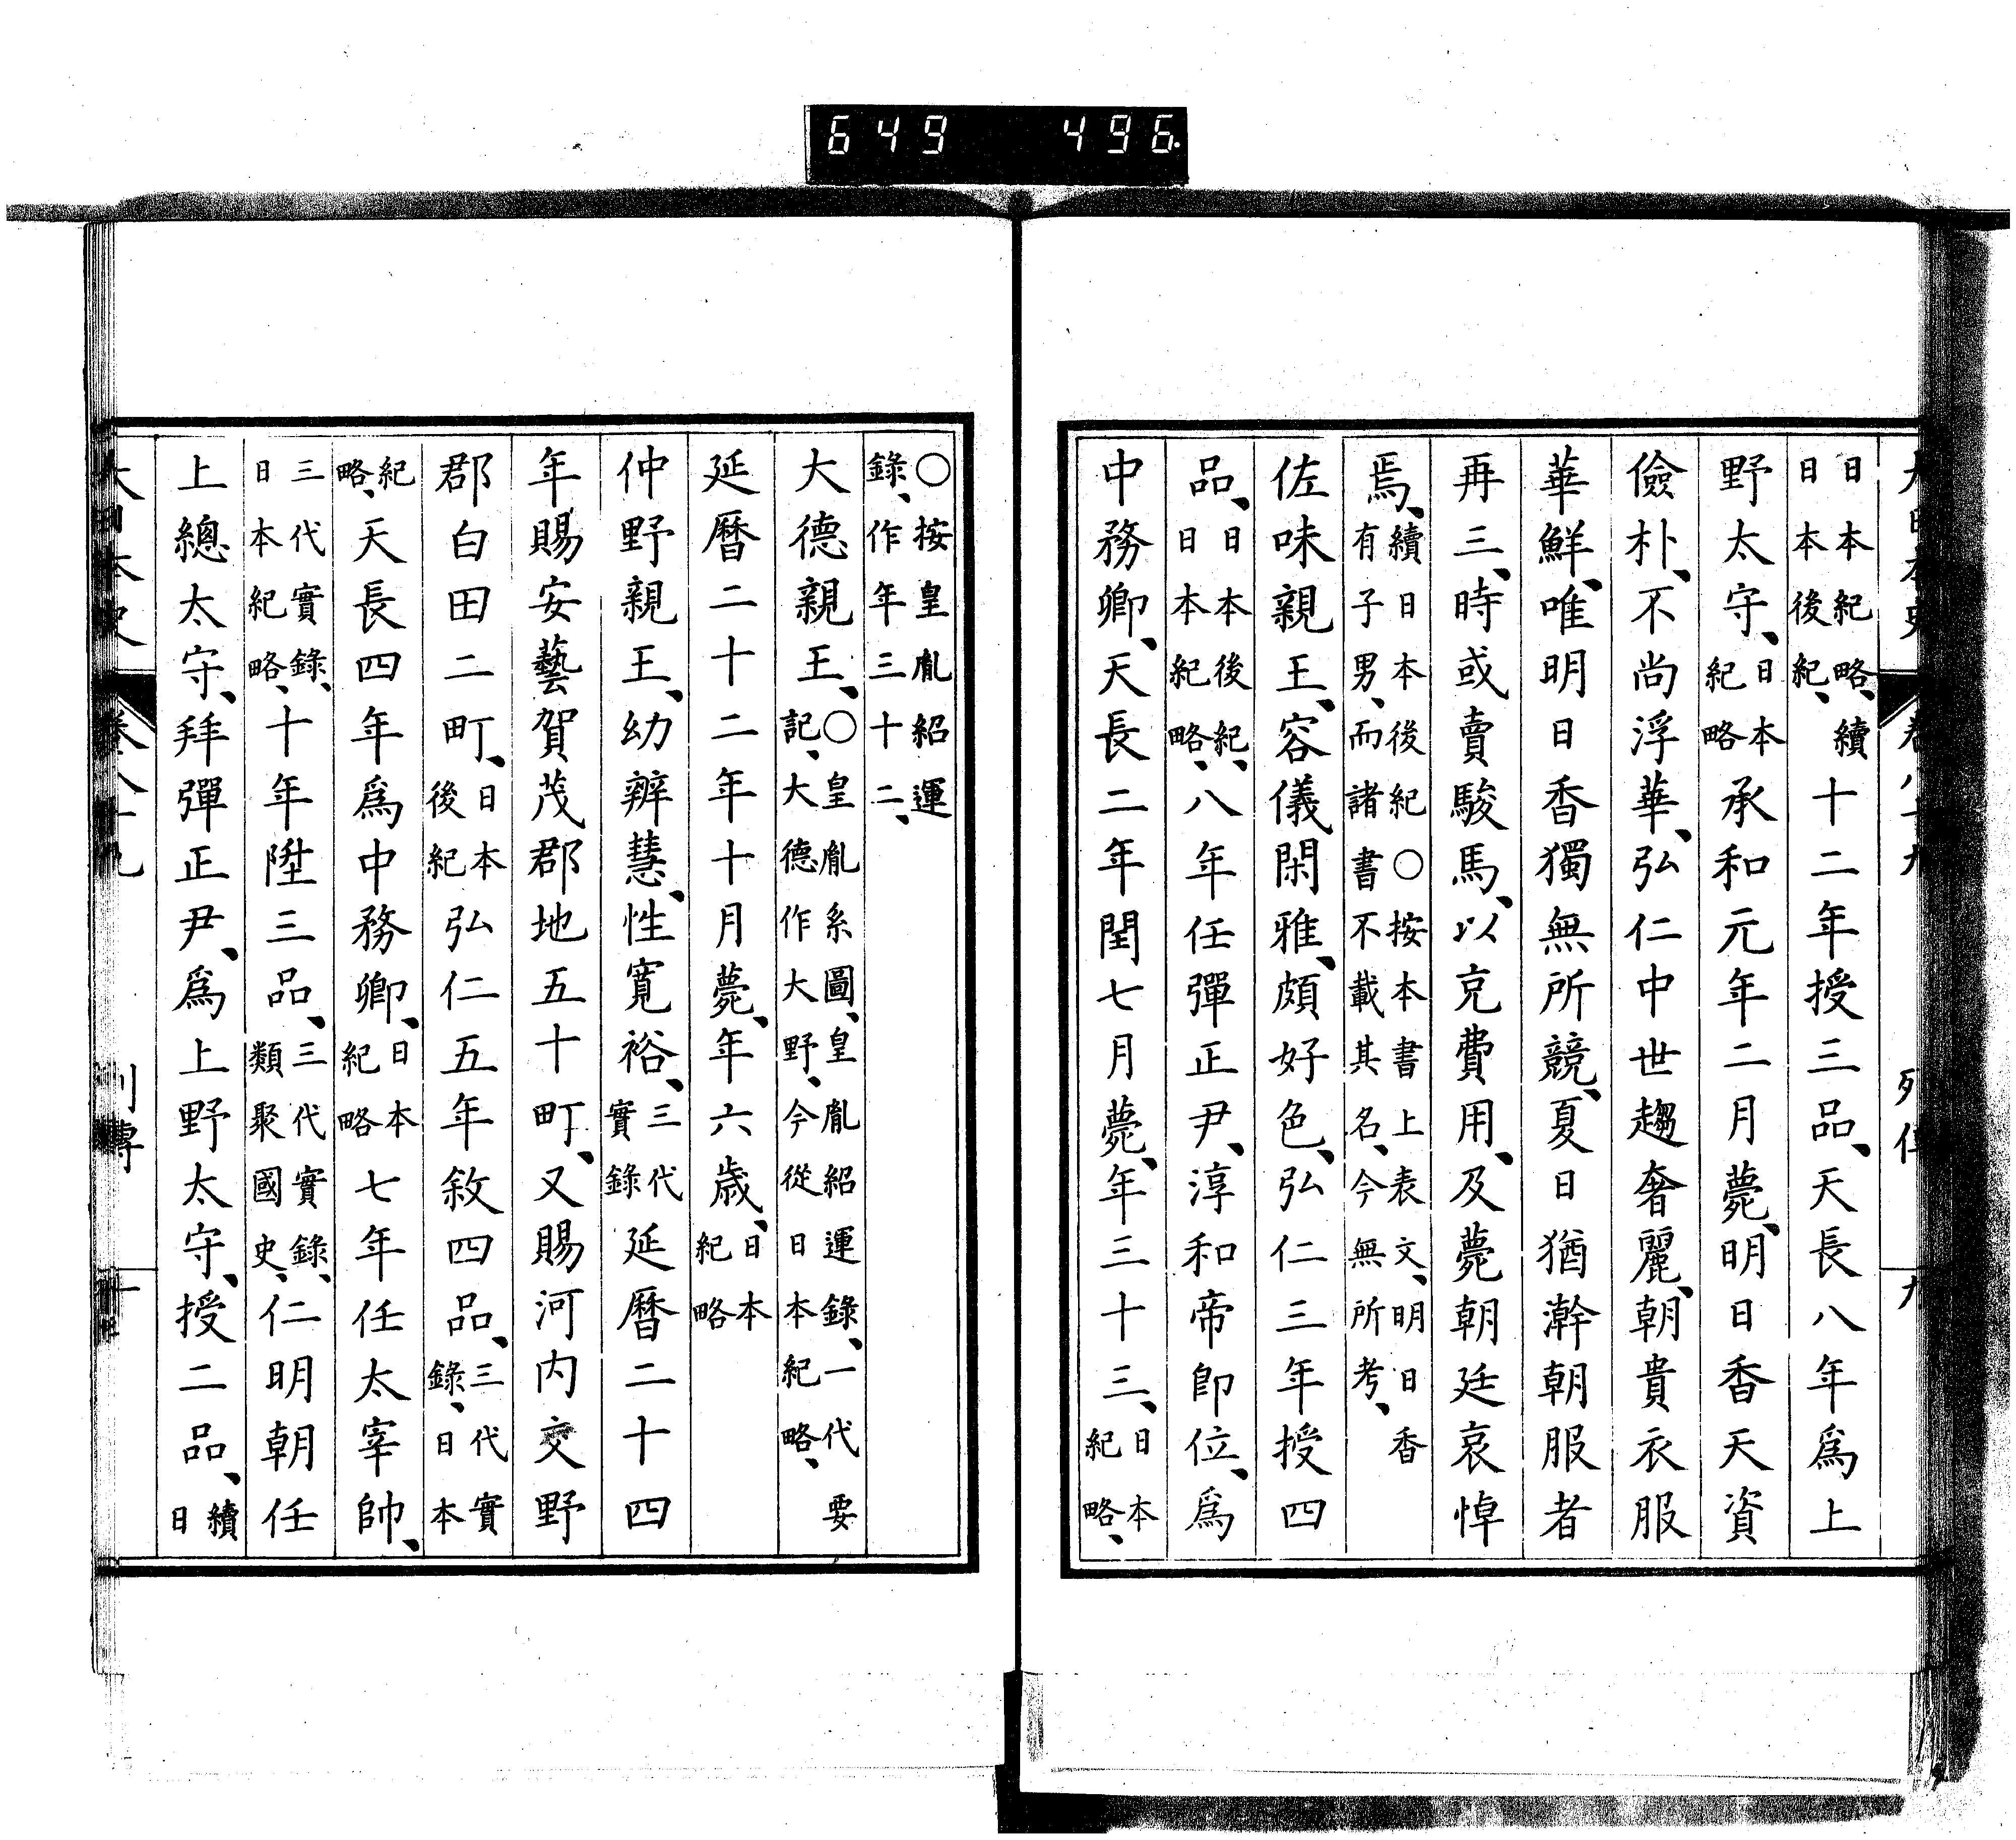 649 496
大日本史 卷八十九 列傳 九
日本紀略、續日本後紀、十二年授三品、天長八年爲上
野太守、日本紀略承和元年二月薨、明日香天資
儉朴、不尚浮華、弘仁中世趨奢麗、朝貴衣服
華鮮、唯明日香獨無所競、夏日猶澣朝服者
再三、時或賣駿馬、以充費用、及薨朝廷哀悼
焉、續日本後紀○按本書上表文、明日香有子男、而諸書不載其名、今無所考、
佐味親王、容儀閑雅、頗好色、弘仁三年授四
品、日本後紀、日本紀略、八年任彈正尹、淳和帝即位、爲
中務卿、天長二年閏七月薨、年三十三、日本紀略、
○按皇胤紹運錄、作年三十二、
大德親王、○皇胤系圖、皇胤紹運錄、一代要記、大德作大野、今從日本紀略、
延曆二十二年十月薨、年六歲、日本紀略
仲野親王、幼辨慧、性寬裕、三代實錄延曆二十四
年賜安藝賀茂郡地五十町、又賜河內交野
郡白田二町、日本後紀弘仁五年敘四品、三代實錄、日本
紀略、天長四年爲中務卿、日本紀略七年任太宰帥、
三代實錄、日本紀略、十年陞三品、三代實錄、類聚國史、仁明朝任
上總太守、拜彈正尹、爲上野太守、授二品、續日
大日本史 卷八十九 列傳 十